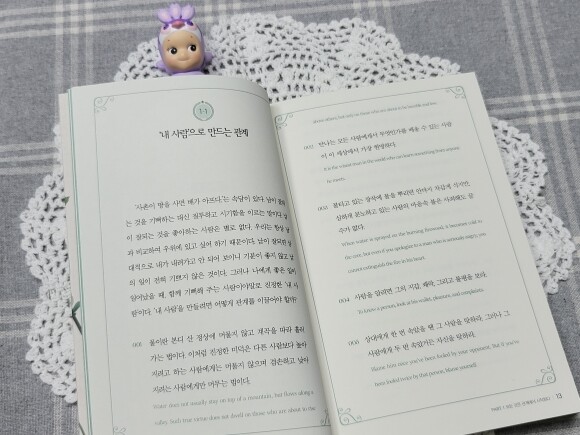 1-1
'내 사람'으로 만드는 관계
'사촌이 땅을 사면 배가 아프다.'는 속담이 있다. 남이 잘되
는 것을 기뻐하는 대신 질투하고 시기함을 이르는 말이다. 남
이 잘되는 것을 좋아하는 사람은 별로 없다. 우리는 항상 남
과 비교하여 우위에 있고 싶어 하기 때문이다. 남이 잘되면 상
대적으로 내가 내려가고 안 되어 보이니 기분이 좋지 않고 남
의 일이 전혀 기쁘지 않은 것이다. 그러나 나에게 좋은 일이
일어났을 때, 함께 기뻐해 주는 사람이야말로 진정한 '내 사
람'이다. '내 사람'을 만들려면 어떻게 관계를 이끌어야 할까?
001 물이란 본디 산 정상에 머물지 않고 계곡을 따라 흘러
가는 법이다. 이처럼 진정한 미덕은 다른 사람보다 높아
지려고 하는 사람에게는 머물지 않으며 겸손하고 낮아
지려는 사람에게만 머무는 법이다.
Water does not usually stay on top of a mountain, but flows along a
valley. Such true virtue does not dwell on those who are about to be
above others, but only on those who are about to be humble and low.
002 만나는 모든 사람에게서 무엇인가를 배울 수 있는 사람
이 이 세상에서 가장 현명하다.
It is the wisest man in the world who can learn something from anyone
he meets.
003 불타고 있는 장작에 물을 뿌리면 언젠가 차갑게 식지만,
심하게 분노하고 있는 사람의 마음속 불은 사죄해도 끌
수가 없다.
When water is sprayed on the burning firewood, it becomes cold in
the end, but even if you apologize to a man who is seriously angry, you
cannot extinguish the fire in his heart.
004 사람을 알려면 그의 지갑, 쾌락, 그리고 불평을 보라.
To know a person, look at his wallet, pleasure, and complaints.
005 상대에게 한 번 속았을 땐 그 사람을 탓하라. 그러나 그
사람에게 두 번 속았거든 자신을 탓하라.
Blame him once you've been fooled by your opponent. But if you've
been fooled twice by that person, blame yourself.
13